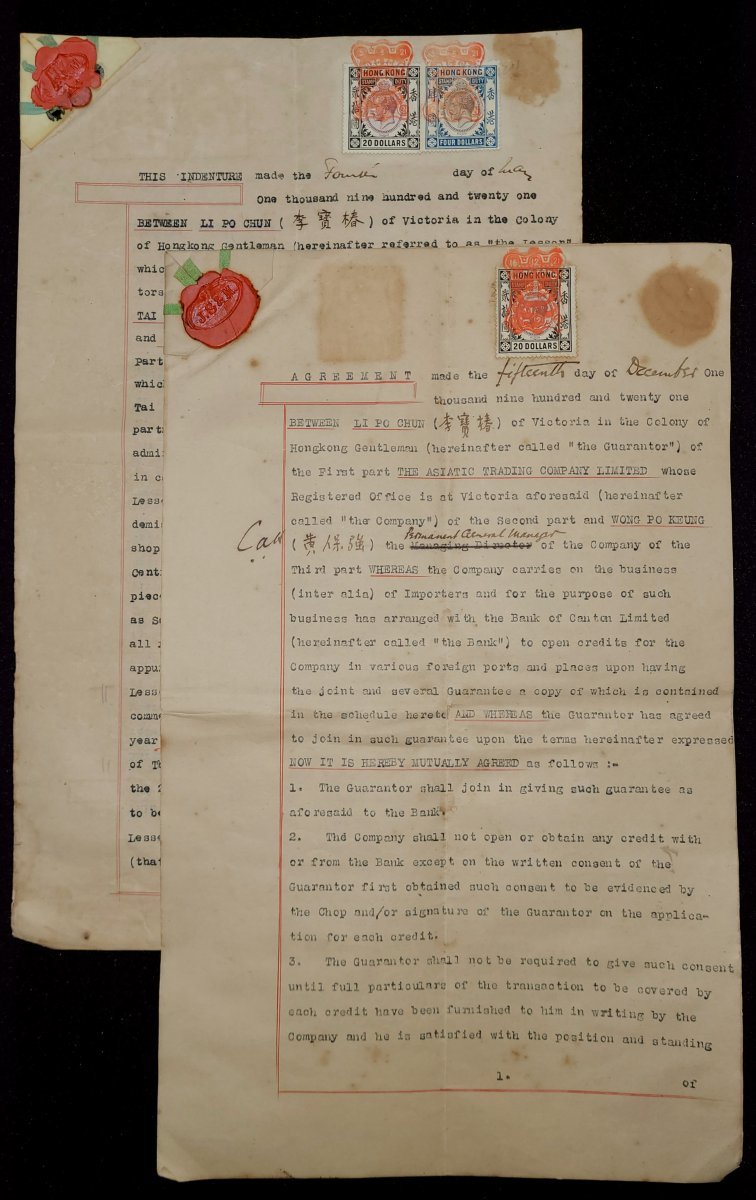 HONG KONG
STAMP DUTY
香港
20 DOLLARS
HONG KONG
STAMP DUTY
香港
FOUR DOLLARS
THIS INDENTURE made the Fourth day of May
One thousand nine hundred and twenty one
BETWEEN LI PO CHUN (李寶椿) of Victoria in the Colony
of Hongkong Gentleman (hereinafter referred to as "the Lessor"
whic
tors
TAI
and
part
whic
Tai
part
admi
in c
Less
demi
shop
Cent
piec
as S
all
appu
Less
comm
year
of T
the
to be
Lesse
(that
16 12 21
HONG KONG
香港
20 DOLLARS
AGREEMENT made the fifteenth day of December One
thousand nine hundred and twenty one
BETWEEN LI PO CHUN (李寶椿) of Victoria in the Colony of
Hongkong Gentleman (hereinafter called "the Guarantor") of
the First part THE ASIATIC TRADING COMPANY LIMITED whose
Registered Office is at Victoria aforesaid (hereinafter
called "the Company") of the Second part and WONG PO KEUNG
Permanent General Manager
(黄保強) the Managing Director of the Company of the
Third part WHEREAS the Company carries on the business
(inter alia) of Importers and for the purpose of such
business has arranged with the Bank of Canton Limited
(hereinafter called "the Bank") to open credits for the
Company in various foreign ports and places upon having
the joint and several Guarantee a copy of which is contained
in the schedule hereto AND WHEREAS the Guarantor has agreed
to join in such guarantee upon the terms hereinafter expressed
NOW IT IS HEREBY MUTUALLY AGREED as follows :-
1. The Guarantor shall join in giving such guarantee as
aforesaid to the Bank.
2. The Company shall not open or obtain any credit with
or from the Bank except on the written consent of the
Guarantor first obtained such consent to be evidenced by
the Chop and/or signature of the Guarantor on the applica-
tion for each credit.
3. The Guarantor shall not be required to give such consent
until full particulars of the transaction to be covered by
each credit have been furnished to him in writing by the
Company and he is satisfied with the position and standing
1.
of